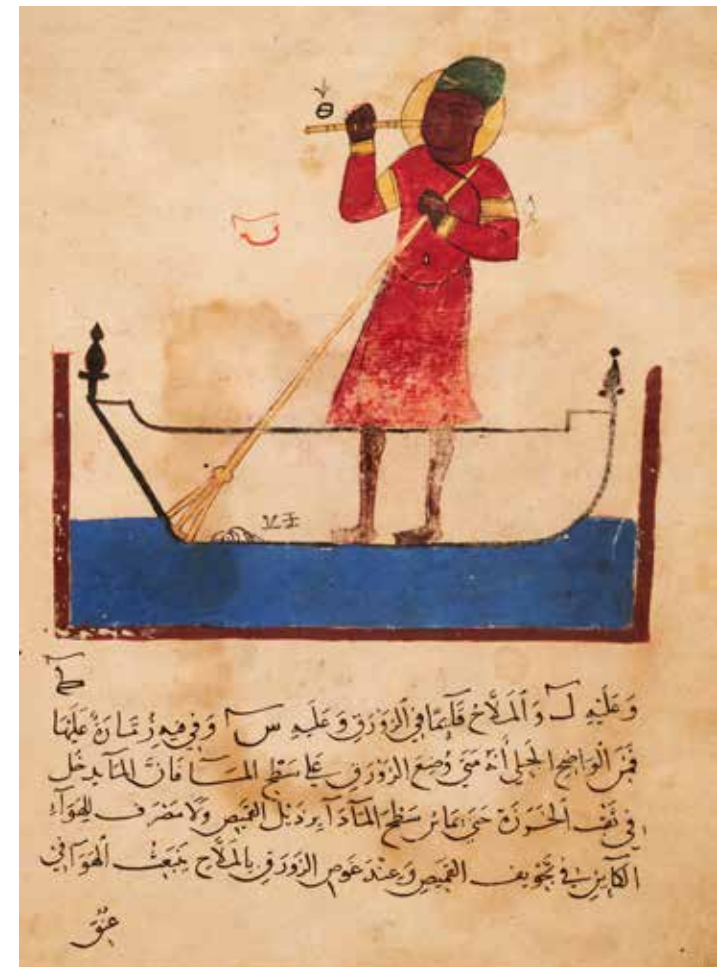 وعليه ل والملاح قايما في الزورق وعليه س وفي فيه زمارة عليها
فمن الواضح الجلي أنه متى وضع الزورق على سطح الماء فان الماء يدخل
في ثقب الخرزة حتى يماس سطح الماء داير ذيل القميص ولا مصرف للهواء
الكاين في تجويف القميص وعند غوص الزورق بالملاح ينبعث الهواء في
عنق